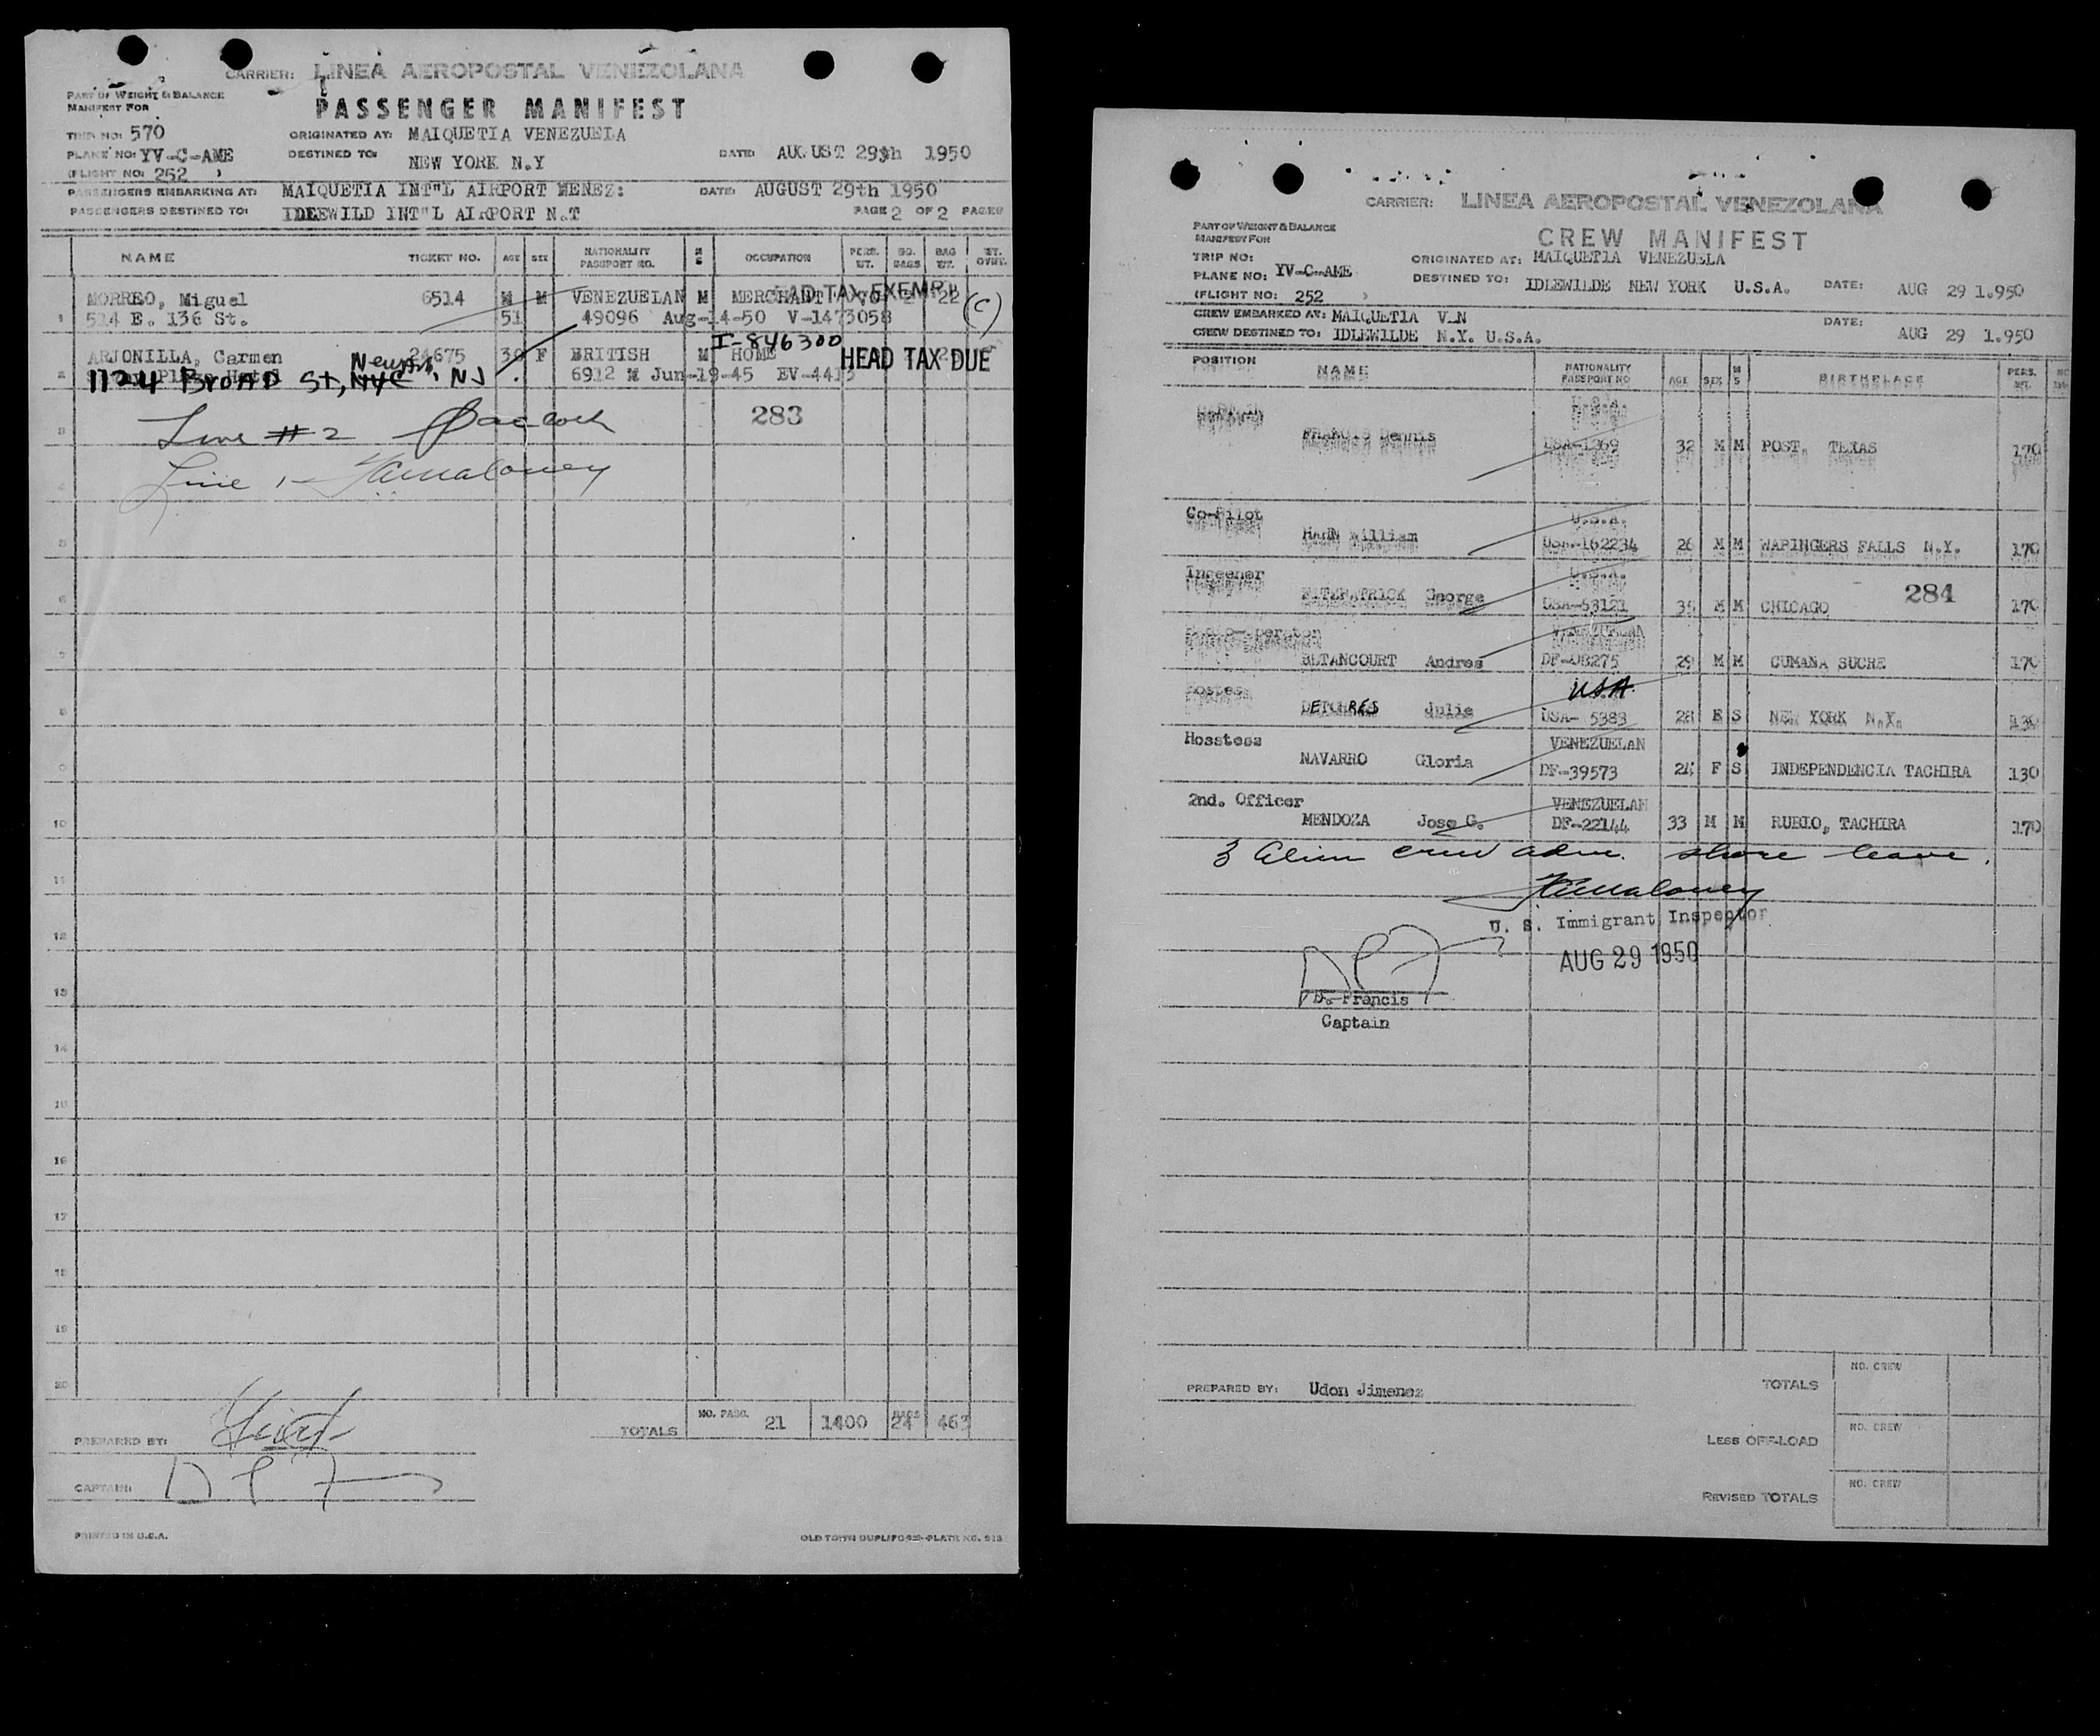 CARRIER: LINEA AEROPOSTAL VENEZOLANA
PART OF WEIGHT & BALANCE
MANIFEST FOR
PASSENGER MANIFEST
TRIP NO: 570
ORIGINATED AT: MAIQUETIA VENEZUELA
PLANE NO: YV-C-AME
DESTINED TO: NEW YORK N.Y
DATE: AUGUST 29th 1950
(FLIGHT NO: 252 )
PASSENGERS EMBARKING AT: MAIQUETIA INT"L AIRPORT WENEZ:
DATE: AUGUST 29th 1950
PASSENGERS DESTINED TO: IDEEWILD INT"L AIRPORT N.T
PAGE 2 OF 2 PAGES
NAME TICKET NO. AGE SEX NATIONALITY PASSPORT NO. M S OCCUPATION PERS. WT. NO. BAGS BAG WT. WT. OVWT.
1 MORREO, Miguel 6514 M M VENEZUELAN M MERCHANT 22 (C)
HEAD TAX EXEMPT
514 E. 136 St. 51 49096 Aug-14-50 V-1473058
I-846300
2 ARJONILLA, Carmen 24675 30 F BRITISH M HOME HEAD TAX DUE
1124 BROAD St, NYC Newark, NJ 6912 M Jun-19-45 EV-4415
3 Line #2 283
4 Line 1- Maloney
5
6
7
8
9
10
11
12
13
14
15
16
17
18
19
20
TOTALS NO. PASG. 21 1400 BAGS 24 463
PREPARED BY:
CAPTAIN:
PRINTED IN U.S.A.
OLD TOWN DUPLIFORM-PLATE NO. 913
CARRIER: LINEA AEROPOSTAL VENEZOLANA
PART OF WEIGHT & BALANCE
MANIFEST FOR
CREW MANIFEST
TRIP NO:
ORIGINATED AT: MAIQUETIA VENEZUELA
PLANE NO: YV-C-AME
DESTINED TO: IDLEWILDE NEW YORK U.S.A.
DATE: AUG 29 1.950
(FLIGHT NO: 252 )
CREW EMBARKED AT: MAIQUETIA V_N
DATE:
CREW DESTINED TO: IDLEWILDE N.Y. U.S.A.
AUG 29 1.950
POSITION NAME NATIONALITY PASSPORT NO AGE SEX M S BIRTHPLACE PERS. WT.
U.S.A.
FRANCIS Dennis USA-1269 32 M M POST, TEXAS 170
Co-Pilot U.S.A.
HAHN William USA-162234 26 M M WAPINGERS FALLS N.Y. 170
Ingeener U.S.A.
284
FITZPATRICK George USA-53121 35 M M CHICAGO 170
VENEZUELAN
BETANCOURT Andres DF-08275 29 M M CUMANA SUCRE 170
Hostes USA
DETCHRES Julie USA- 5383 28 F S NEW YORK N.Y. 130
Hosstess VENEZUELAN
NAVARRO Gloria DF-39573 24 F S INDEPENDENCIA TACHIRA 130
2nd. Officer VENEZUELAN
MENDOZA Jose G. DF-22144 33 M M RUBIO, TACHIRA 170
3 Alien crew adm. shore leave.
Maloney
U. S. Immigrant Inspector
AUG 29 1950
D. Francis
Captain
PREPARED BY: Udon Jimenez
TOTALS NO. CREW
LESS OFF-LOAD NO. CREW
REVISED TOTALS NO. CREW